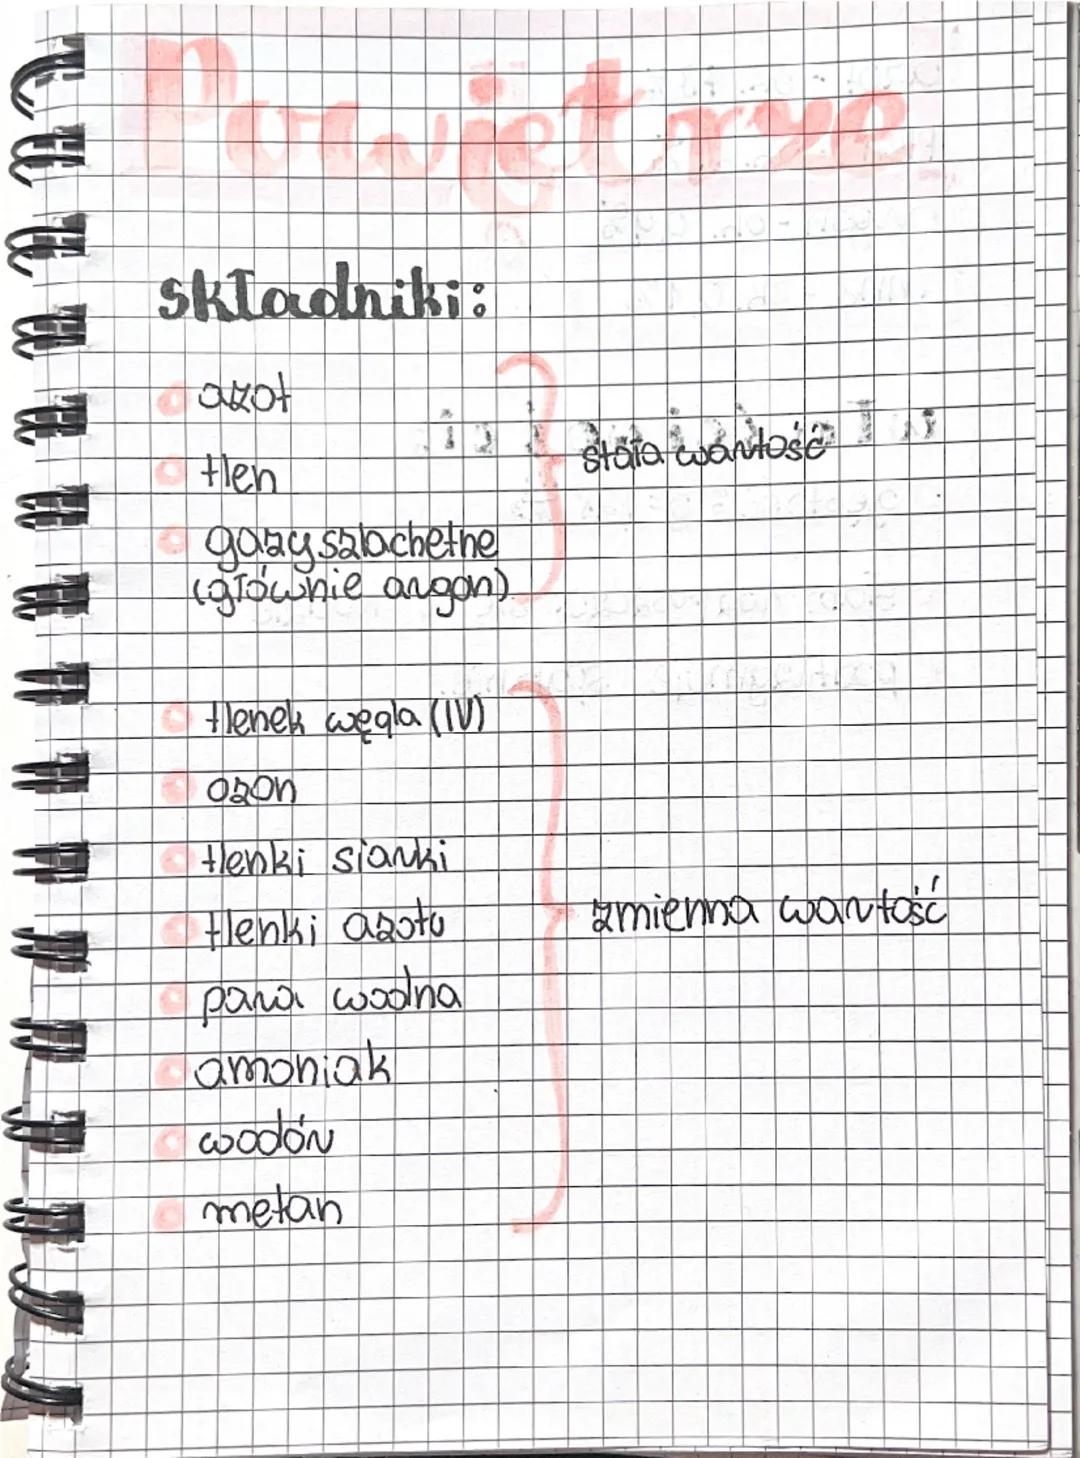 Powietrze
składniki:
azot
tlen
stała wartość
gazy szlachetne
(głównie argon)
tlenek węgla (IV)
ozon
tlenki siarki
tlenki azotu
zmienna wartość
para wodna
amoniak
wodór
metan